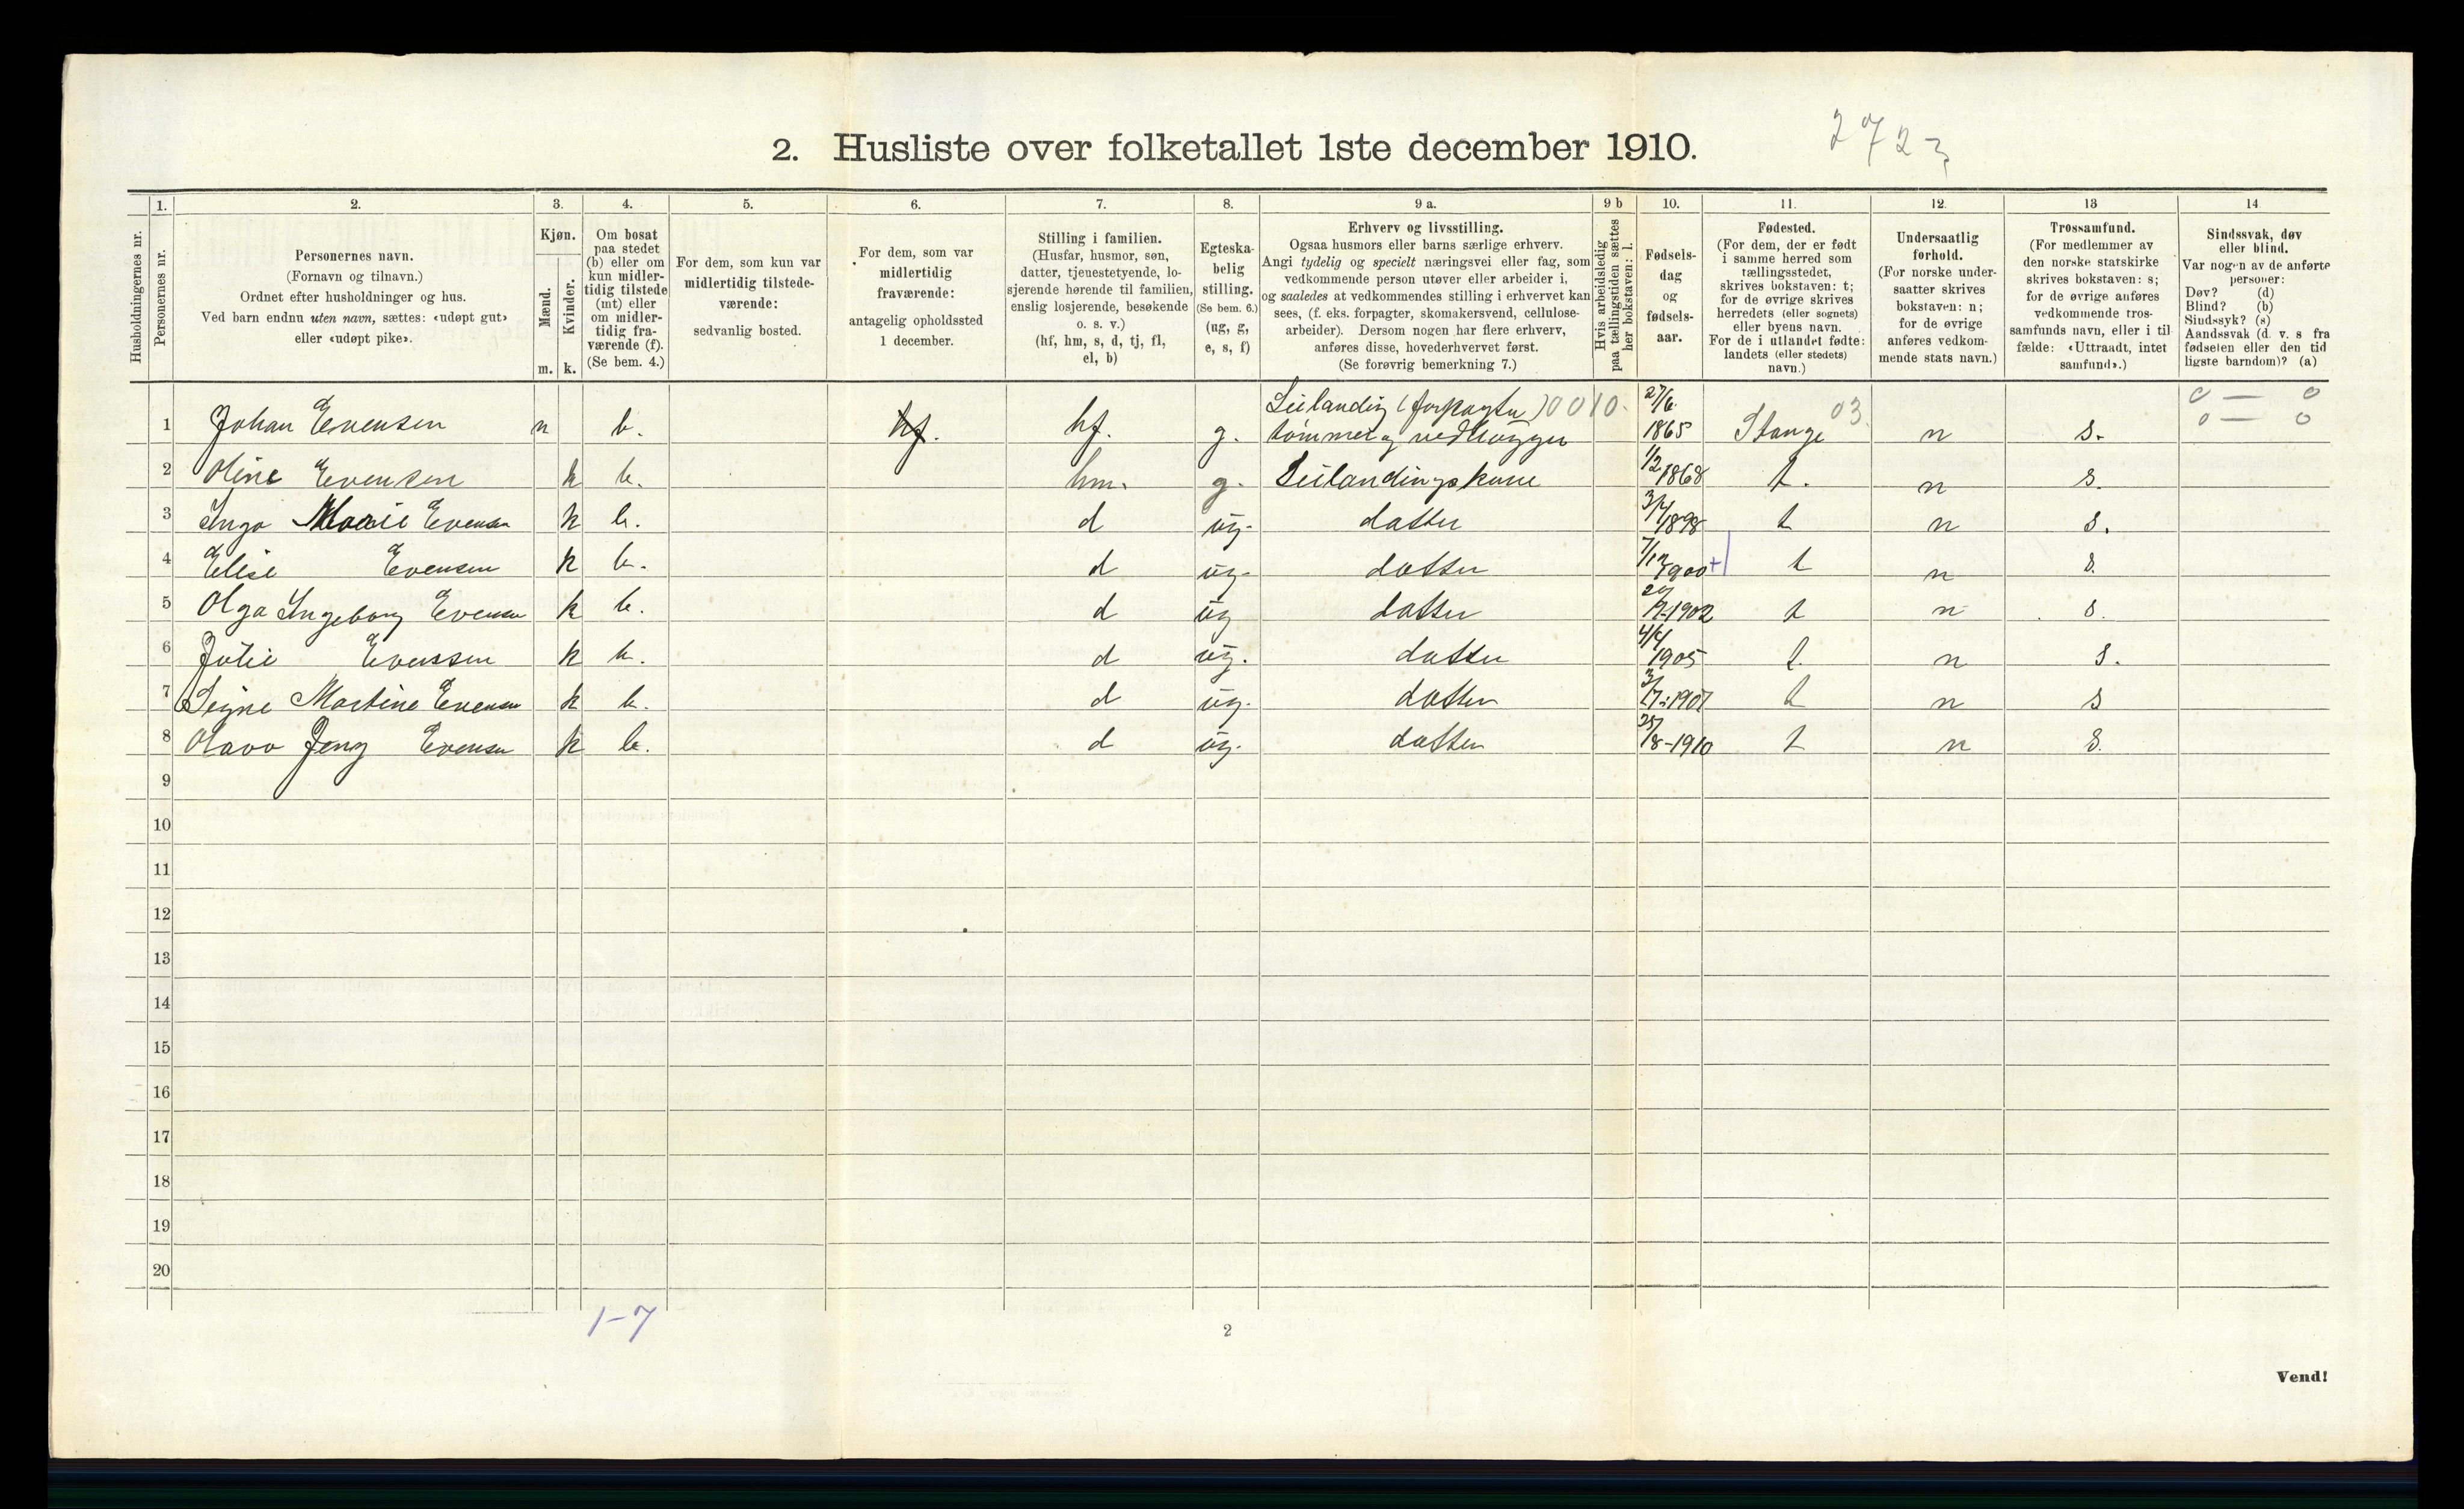 2. Husliste over folketallet 1ste december 1910.
272
Husholdningernes nr.
1.
Personernes nr.
2.
Personernes navn.
(Fornavn og tilnavn.)
Ordnet efter husholdninger og hus.
Ved barn endnu uten navn, sættes: «udøpt gut»
eller «udøpt pike».
3.
Kjøn.
Mænd.
Kvinder.
m. k.
4.
Om bosat
paa stedet
(b) eller om
kun midler-
tidig tilstede
(mt) eller
om midler-
tidig fra-
værende (f).
(Se bem. 4.)
5.
For dem, som kun var
midlertidig tilstede-
værende:
sedvanlig bosted.
6.
For dem, som var
midlertidig
fraværende:
antagelig opholdssted
1 december.
7.
Stilling i familien.
(Husfar, husmor, søn,
datter, tjenestetyende, lo-
sjerende hørende til familien,
enslig losjerende, besøkende
o. s. v.)
(hf, hm, s, d, tj, fl,
el, b)
8.
Egteska-
belig
stilling.
(Se bem. 6.)
(ug, g,
e, s, f)
9 a.
Erhverv og livsstilling.
Ogsaa husmors eller barns særlige erhverv.
Angi tydelig og specielt næringsvei eller fag, som
vedkommende person utøver eller arbeider i,
og saaledes at vedkommendes stilling i erhvervet kan
sees, (f. eks. forpagter, skomakersvend, cellulose-
arbeider). Dersom nogen har flere erhverv,
anføres disse, hovederhvervet først.
(Se forøvrig bemerkning 7.)
9 b
Hvis arbeidsledig
paa tællingstiden sættes
her bokstaven: l.
10.
Fødsels-
dag
og
fødsels-
aar.
11.
Fødested.
(For dem, der er født
i samme herred som
tællingsstedet,
skrives bokstaven: t;
for de øvrige skrives
herredets (eller sognets)
eller byens navn.
For de i utlandet fødte:
landets (eller stedets)
navn.)
12.
Undersaatlig
forhold.
(For norske under-
saatter skrives
bokstaven: n;
for de øvrige
anføres vedkom-
mende stats navn.)
13
Trossamfund.
(For medlemmer av
den norske statskirke
skrives bokstaven: s;
for de øvrige anføres
vedkommende tros-
samfunds navn, eller i til
fælde: «Uttraadt, intet
samfund».)
14
Sindssvak, døv
eller blind.
Var nogen av de anførte
personer:
Døv? (d)
Blind? (b)
Sindssyk? (s)
Aandssvak (d. v. s fra
fødselen eller den tid
ligste barndom)? (a)
Leilanding (forpagter) 0010. 27/6 03 0 — 0
1 Johan Evensen m b. hf. hf. g. tømmer og vedhugger 1865 Stange n s. 0 — 0
2 Oline Evensen k b. hm. g. Leilandingskone 1/2 1868 t. n s.
3 Inga Marie Evensen k b. d ug. datter 3/4 1898 t n s.
4 Elise Evensen k b. d ug. datter 7/12 1900 + t n s.
5 Olga Ingeborg Evensen k b. d ug datter 1902 t n s.
6 Julie Evensen k b. d ug. datter 4/4 1905 t. n s.
7 Signe Martine Evensen k b. d ug. datter 1907 t n s
8 Evensen k b. d ug. datter 8-1910 t n s.
9
10
11
12
13
14
15
16
17
18
19
20
1-7
2
Vend!